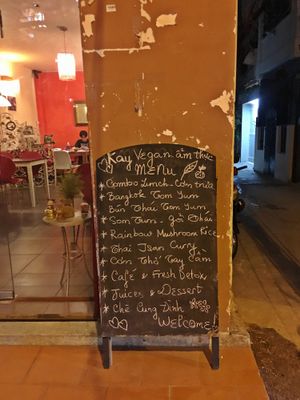 Kay Vegan - ẩm thực
MENU
Combo Lunch - Cơm trưa
Bangkok Tom Yum
Bún Thái Tom Yum
Som Tum - gỏi Thái
Rainbow Mushroom Rice
Thai Isan Curry
Cơm Thố Tay Cầm
Café & Fresh Detox
Juices & Dessert
Chè Cung Đình
Welcome!